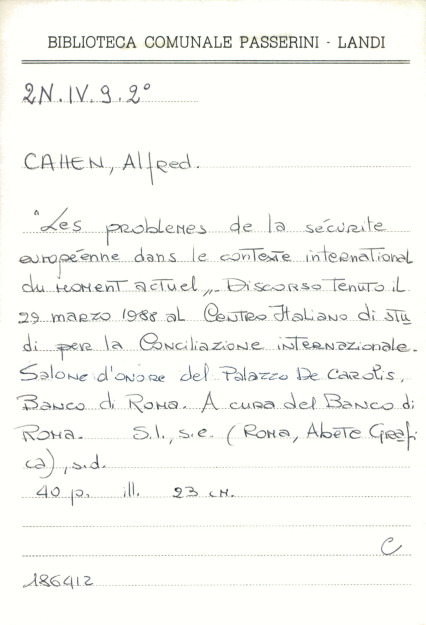 BIBLIOTECA COMUNALE PASSERINI - LANDI
2N.IV.9.2°
CAHEN, Alfred.
"Les problemes de la sécurite
européenne dans le contexte international
du moment actuel". Discorso tenuto il
29 marzo 1988 al Centro Italiano di stu
di per la Conciliazione internazionale.
Salone d'onore del Palazzo De Carolis,
Banco di Roma. A cura del Banco di
Roma. S.l., s.e. (Roma, Abete Grafi
ca), s.d.
40 p. ill. 23 cm.
C
186412